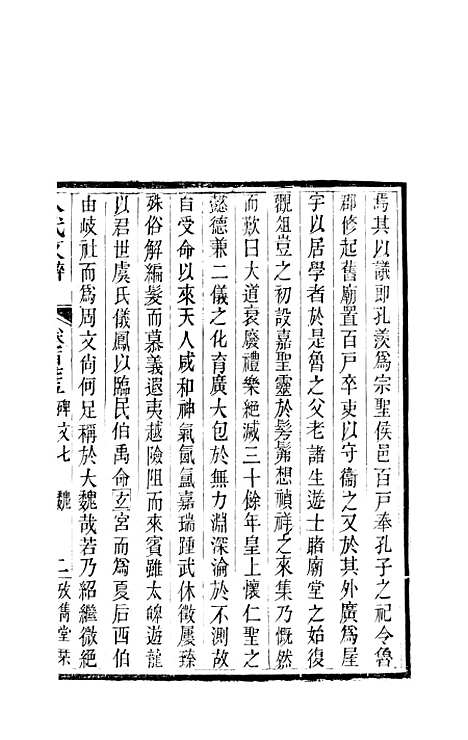 焉其以議即孔羡爲宗聖侯邑百戸奉孔子之祀令魯
郡修起舊廟置百戸卒吏以守衞之又於其外廣爲屋
宇以居學者於是魯之父老諸生遊士睹廟堂之始復
觀俎豆之初設嘉聖靈於髣髴想禎祥之來集乃慨然
而歎曰大道衰廢禮樂絶滅三十餘年皇上懷仁聖之
懿德兼二儀之化育廣大包於無力淵深淪於不測故
自受命以來天人咸和神氣氤氲嘉瑞踵武休徵屢臻
殊俗解編髮而慕義遐夷越險阻而來賓雖太皡遊龍
以君世虞氏儀鳳以臨民伯禹命玄宮而爲夏后西伯
由岐社而爲周文尚何足稱於大魏哉若乃紹繼微絶
八代文粹 碑文七 魏 二 攷雋堂栞